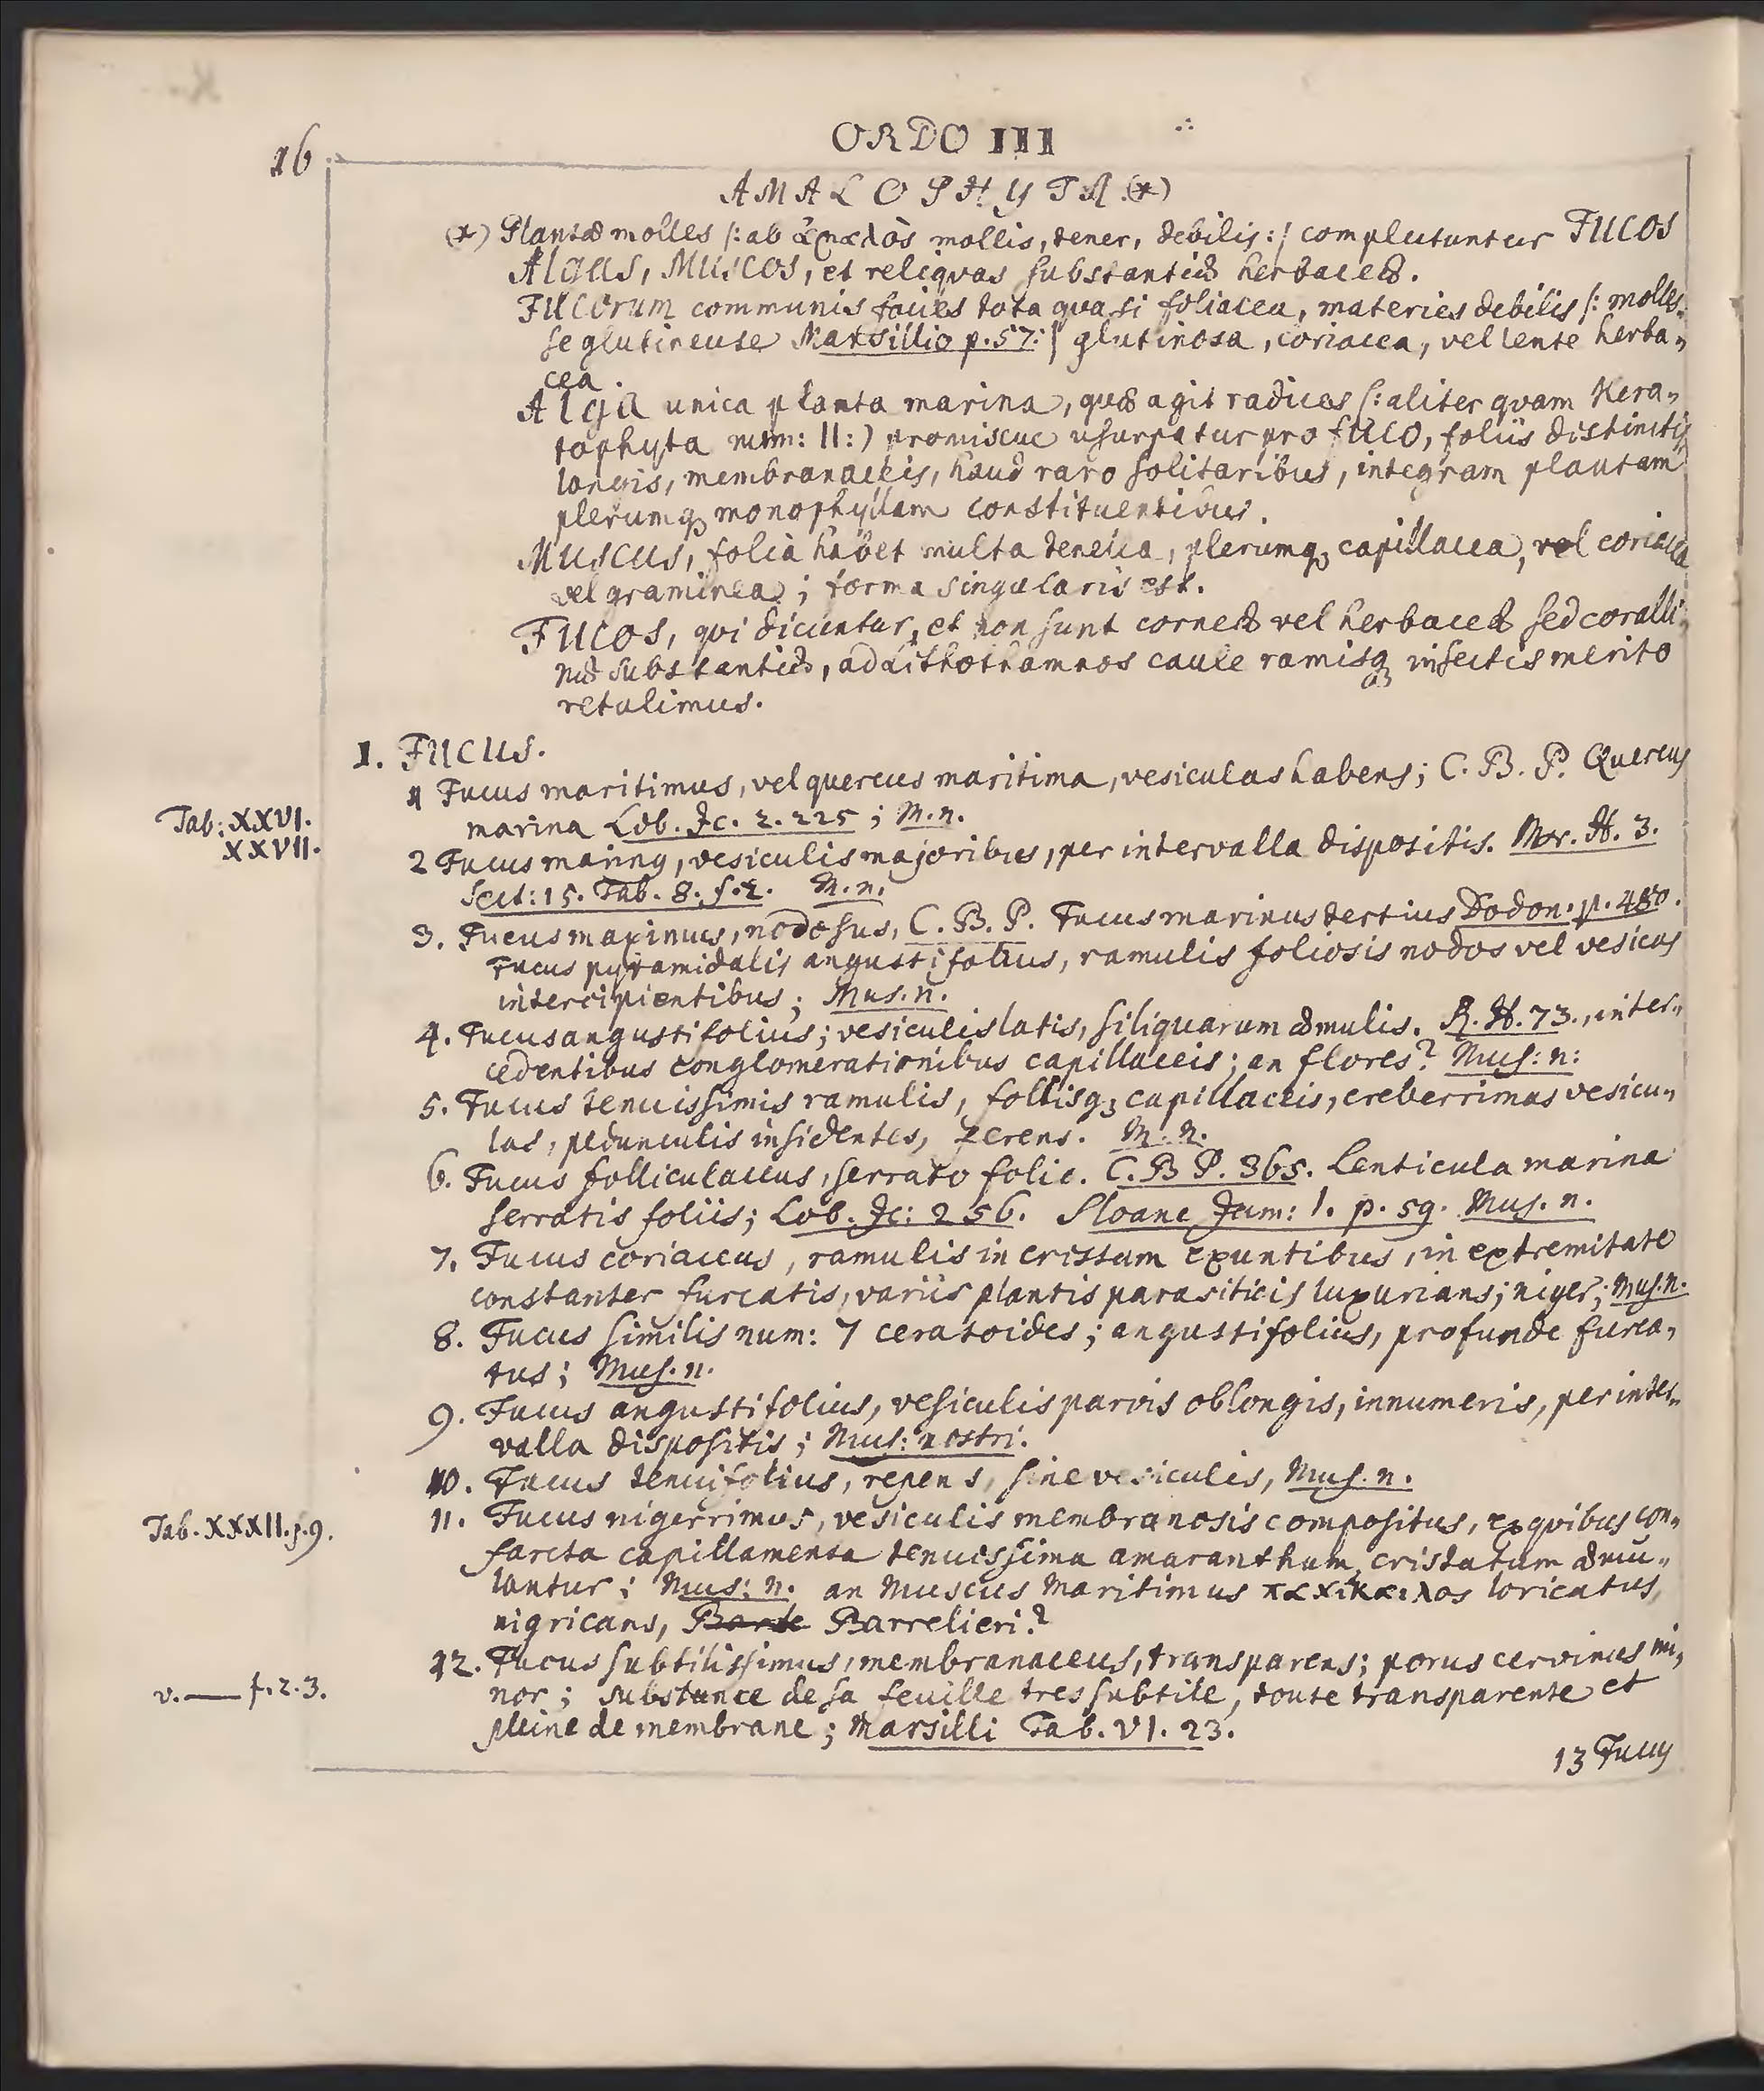 16
ORDO III
AMALOPHYTA (*)
(*) Plantæ molles /: ab ἁμαλὸς mollis, tener, debilis :/ complectuntur FUCOS
Algas, Muscos, et reliqvas substantiæ herbaceæ.
FUCOrum communis facies tota quasi foliacea, materies debilis /: molles-
se glutineuse Marsillio p. 57 :/ glutinosa, coriacea, vel lente herba-
cea.
Alga unica planta marina, quæ agit radices /: aliter qvam Kera-
tophyta num: II :) promiscue usurpatur pro fuco, foliis distinctis
longis, membranaceis, haud raro solitaribus, integram plantam
plerumq3 monophyllam constituentibus.
Muscus, folia habet multa tenella, plerumq3 capillacea, vel coriacea
vel graminea; forma singularis est.
FUCOS, qvi dicuntur, et non sunt corneæ vel herbaceæ sed coralli-
næ substantiæ, ad Lithothamnos caule ramisq3 insectis merito
retulimus.
I. FUCUS.
1 Fucus maritimus, vel quercus maritima, vesiculas habens; C. B. P. Quercus
Tab: XXVI.
XXVII.
marina Lob. Jc. 2. 225; M. n.
2 Fucus marinus, vesiculis majoribus, per intervalla dispositis. Mor. H. 3.
Sect: 15. Tab. 8. f. 2. M. n.
3. Fucus marinus, nodosus, C. B. P. Fucus marinus tertius Dodon. p. 480.
Fucus pyramidalis angustifolius, ramulis foliosis nodos vel vesicas
intercipientibus; Mus. n.
4. Fucus angustifolius; vesiculis latis, siliquarum æmulis. R. H. 73., inter-
cedentibus conglomerationibus capillaceis; an flores? Mus: n:
5. Fucus tenuissimis ramulis, foliisq3 capillaceis, creberrimas vesicu-
las, pedunculis insidentes, gerens. M. n.
6. Fucus folliculaceus, serrato folio. C. B P. 365. Lenticula marina
serratis foliis; Lob. Jc: 256. Sloane Jam: 1. p. 59. Mus. n.
7. Fucus coriaceus, ramulis in crissum exuntibus, in extremitate
constanter furcatis, variis plantis parasiticis luxurians; niger; Mus. n.
8. Fucus similis num: 7 ceratoides; angustifolius, profunde furca-
tus; Mus. n.
9. Fucus angustifolius, vesiculis parvis oblongis, innumeris, per inter-
valla dispositis; Mus: nostri.
10. Fucus tenuifolius, repens, sine vesiculis, Mus. n.
Tab. XXXII. f. 9.
11. Fucus nigerrimus, vesiculis membranosis compositus, ex qvibus con-
farcta capillamenta tenuissima amaranthum cristatum æmu-
lantur; Mus: n. an Muscus Maritimus loricatus,
nigricans, Barrelieri?
12. Fucus subtilissimus, membranaceus, transparens; porus cervinus mi-
v. — f. 2. 3.
nor; substance de sa feuille tres subtile, toute transparente et
pleine de membrane; Marsilli Tab. VI. 23.
13 Fucus